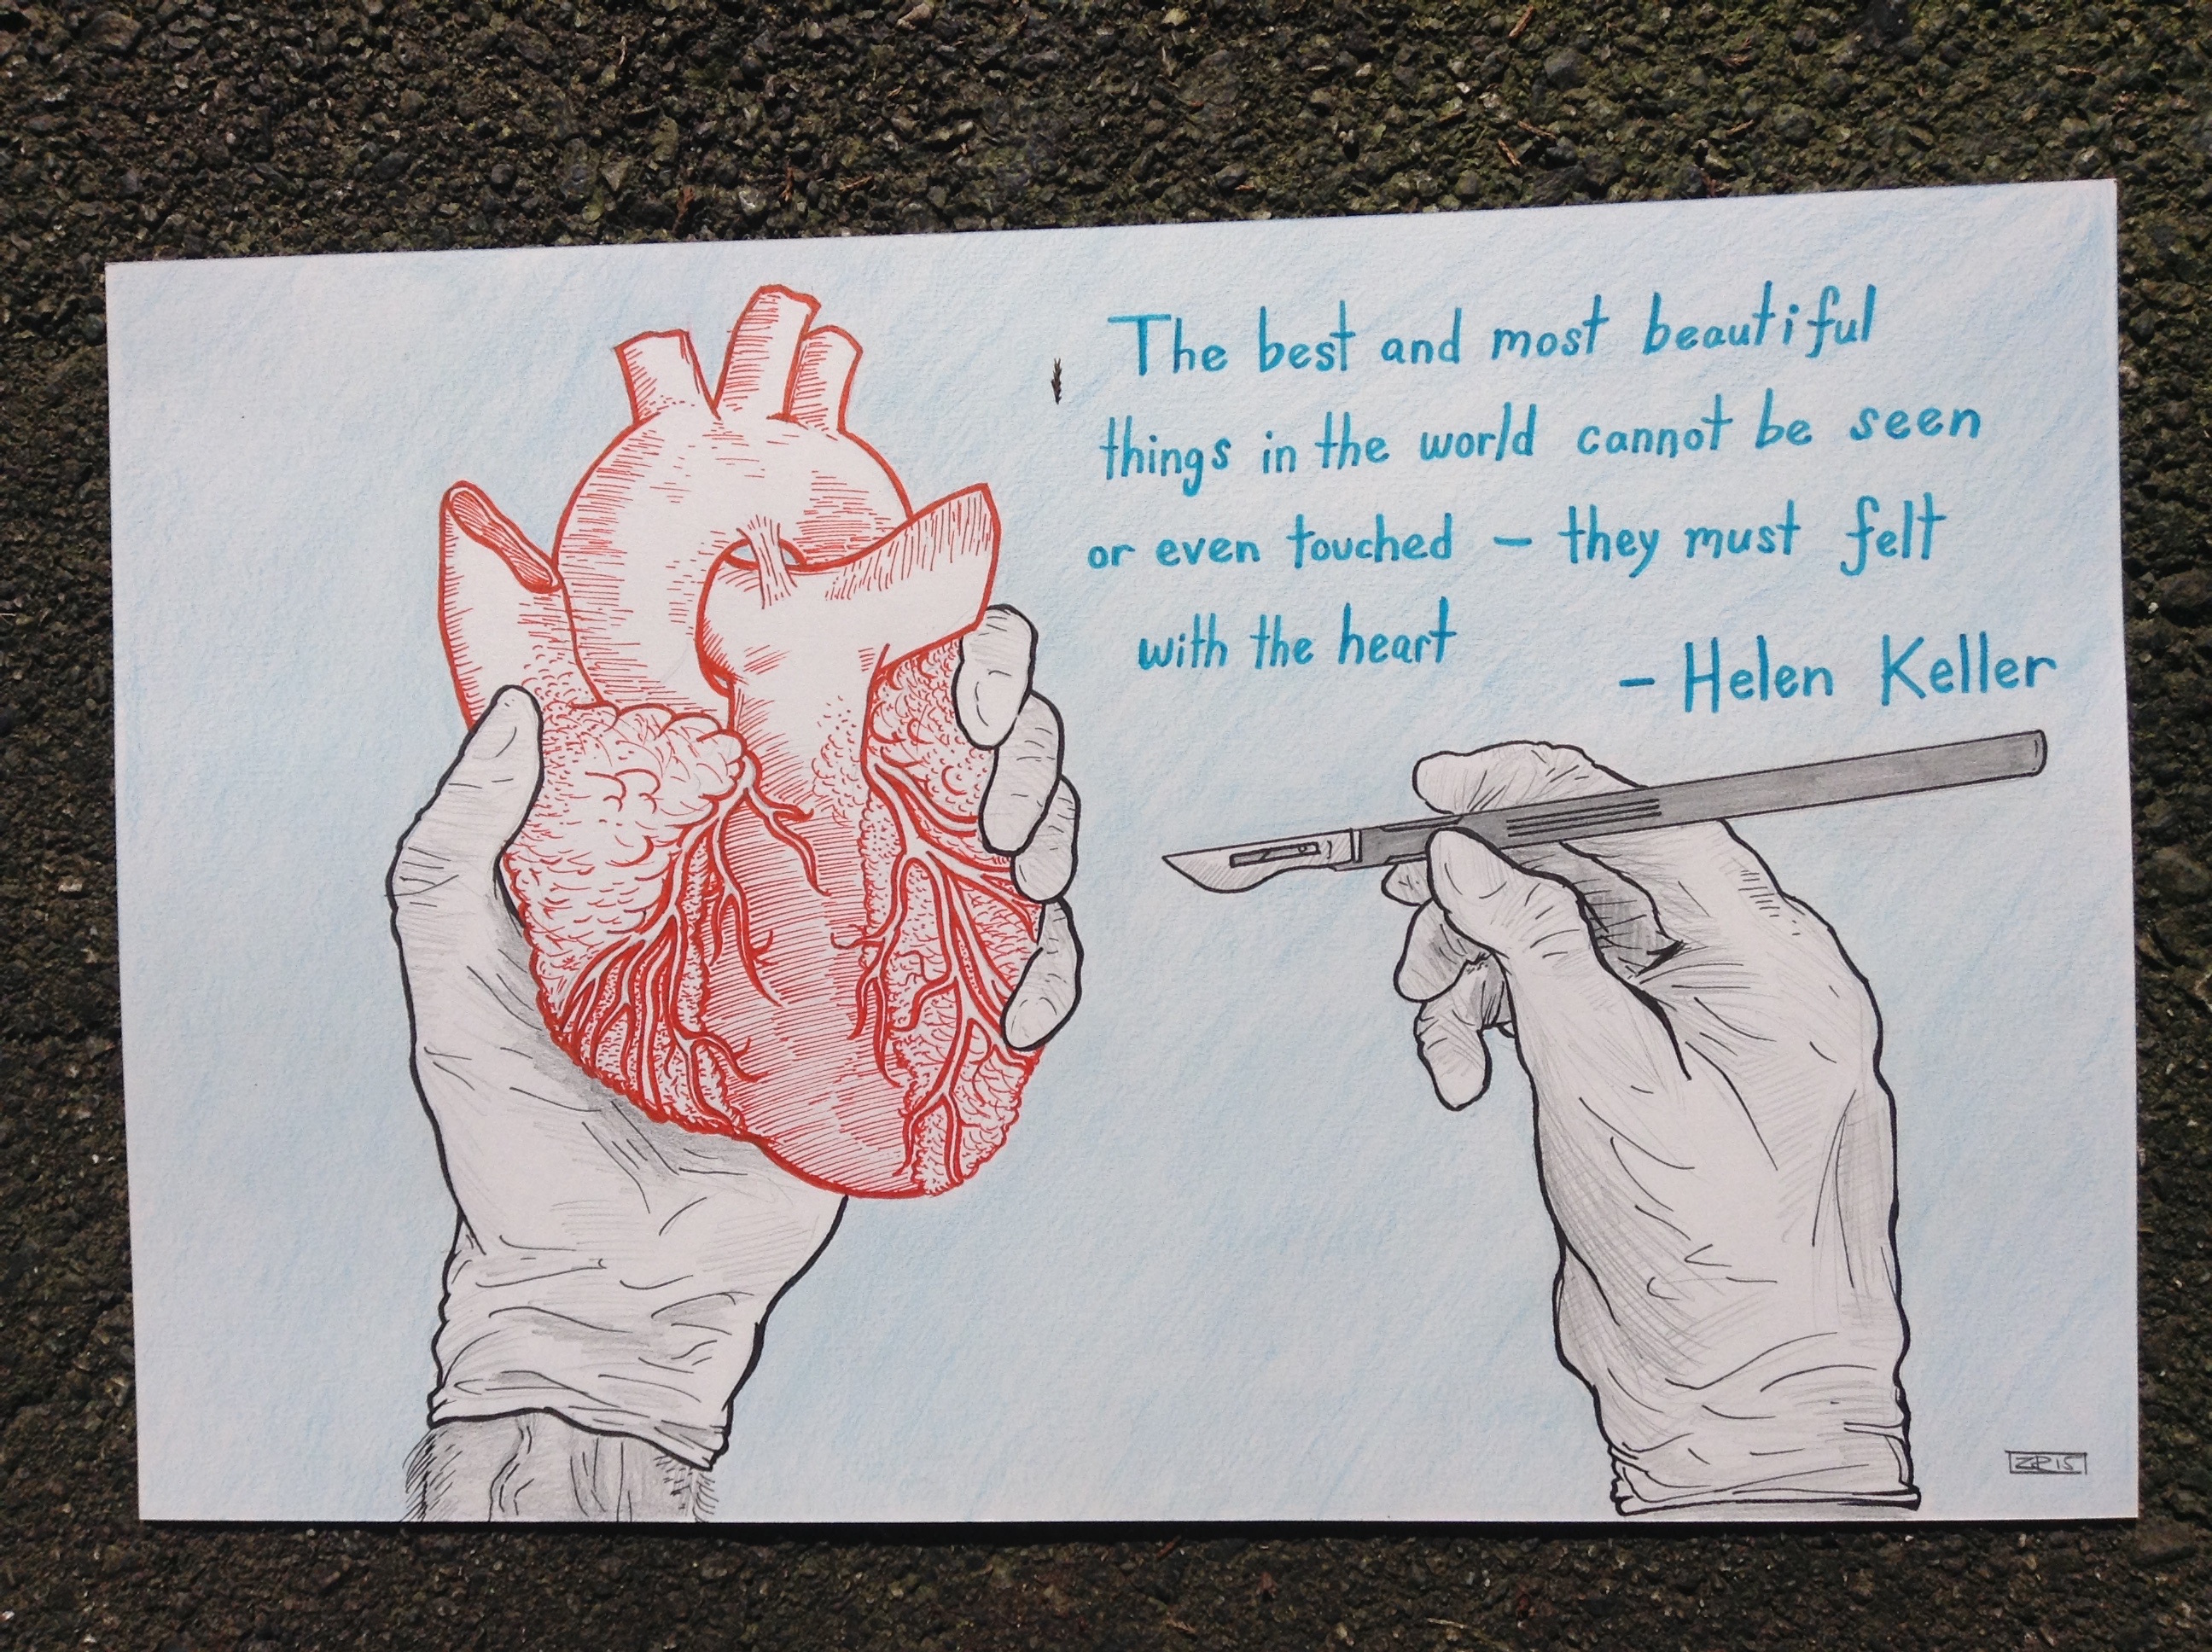 The best and most beautiful
things in the world cannot be seen
or even touched – they must felt
with the heart
– Helen Keller
ZR 15